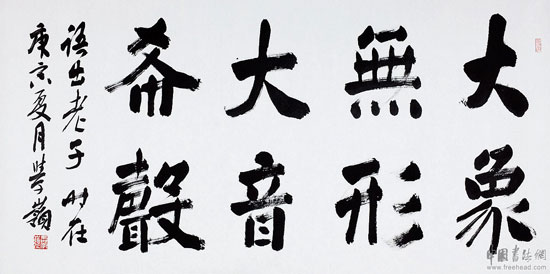 大象
無形
大音
希聲
語出老子时在
庚寅夏月
中國書法網
www.freehead.com